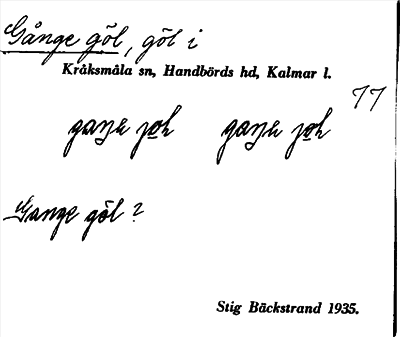 Gånge göl, göl i
Kråksmåla sn, Handbörds hd, Kalmar l.
77
Gange göl?
Stig Bäckstrand 1935.